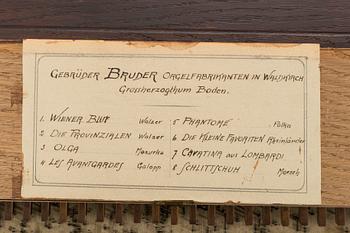 GEBRÜDER BRUDER ORGELFABRIKANTEN IN WALDKIRCH
Grossherzogthum Baden.
1. WIENER BLUT Walzer 5 PHANTOME Polka
2 DIE PROVINZIALEN Walzer 6 DIE KLEINE FAVORITEN Rheinländer
3 OLGA Mazurka 7 CAVATINA aus LOMBARDI
4 LES AVANTGARDES Galopp 8 SCHLITTSCHUH Marsch